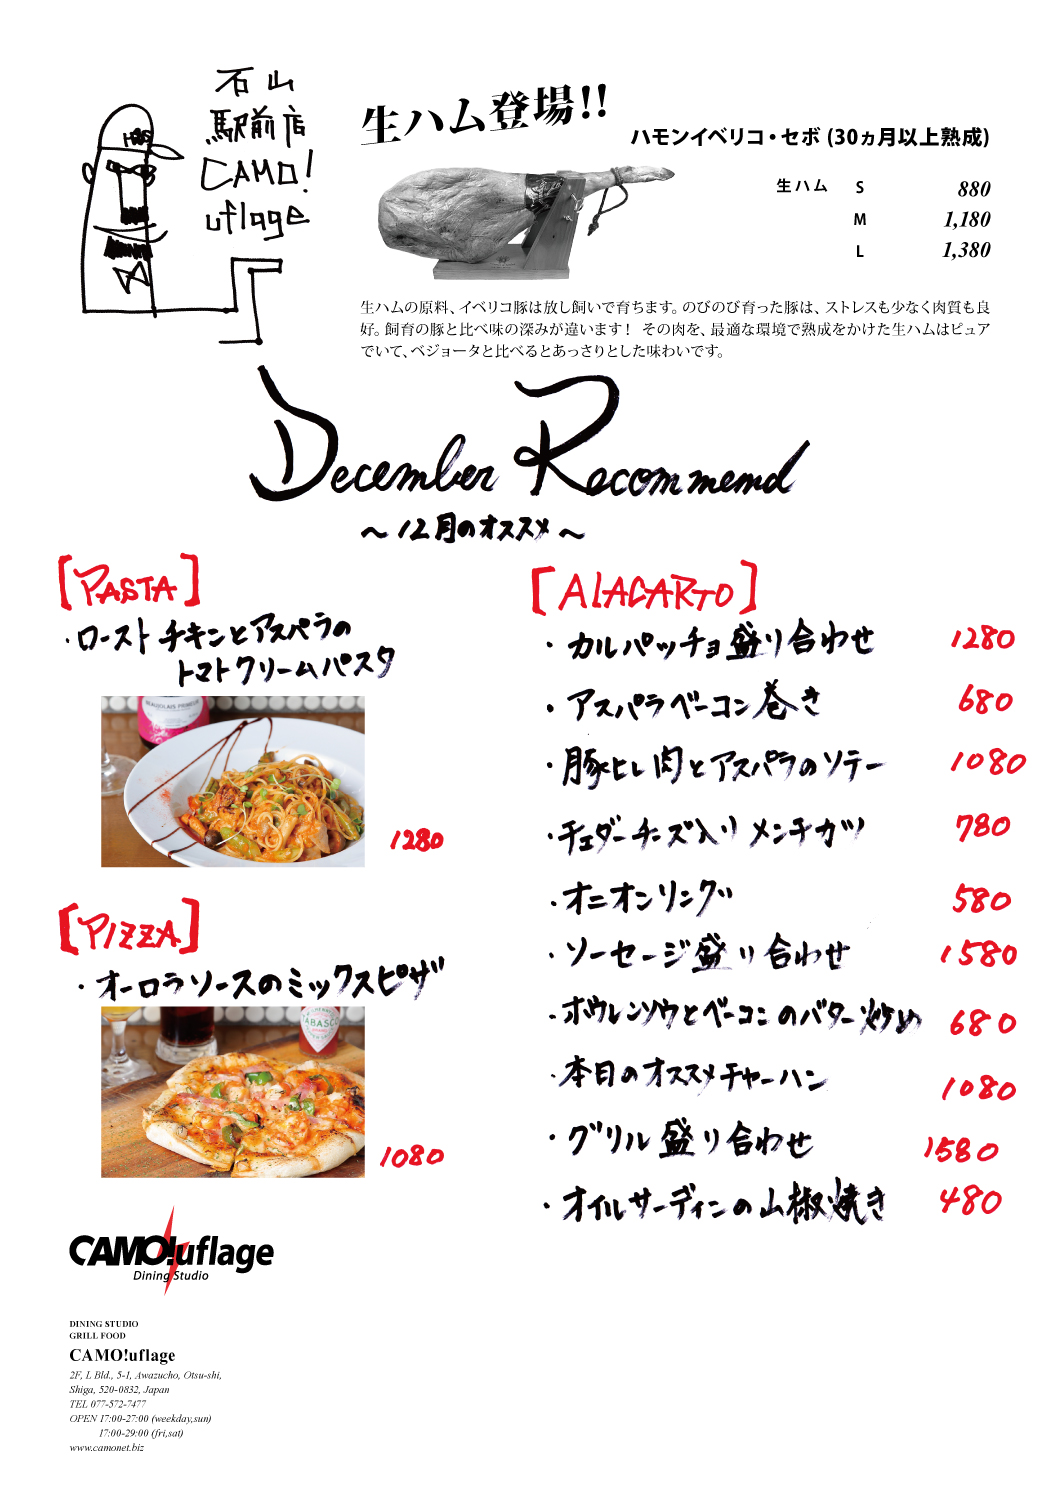 石山
駅前店
CAMO!
uflage
H&S
生ハム登場!!
ハモンイベリコ・セボ (30ヵ月以上熟成)
生ハム S 880
M 1,180
L 1,380
生ハムの原料、イベリコ豚は放し飼いで育ちます。のびのび育った豚は、ストレスも少なく肉質も良
好。飼育の豚と比べ味の深みが違います! その肉を、最適な環境で熟成をかけた生ハムはピュア
でいて、ベジョータと比べるとあっさりとした味わいです。
December Recommemd
～12月のオススメ～
[PASTA]
・ローストチキンとアスパラの
トマトクリームパスタ
BEAUJOLAIS PRIMEUR
1280
[PIZZA]
・オーロラソースのミックスピザ
TABASCO
1080
[ALACARTO]
・カルパッチョ盛り合わせ 1280
・アスパラベーコン巻き 680
・豚ヒレ肉とアスパラのソテー 1080
・チェダーチーズ入り メンチカツ 780
・オニオンリング 580
・ソーセージ盛り合わせ 1580
・ホウレンソウとベーコンのバター炒め 680
・本日のオススメチャーハン 1080
・グリル盛り合わせ 1580
・オイルサーディンの山椒焼き 480
CAMO!uflage
Dining Studio
DINING STUDIO
GRILL FOOD
CAMO!uflage
2F, L Bld., 5-1, Awazucho, Otsu-shi,
Shiga, 520-0832, Japan
TEL 077-572-7477
OPEN 17:00-27:00 (weekday,sun)
17:00-29:00 (fri,sat)
www.camonet.biz